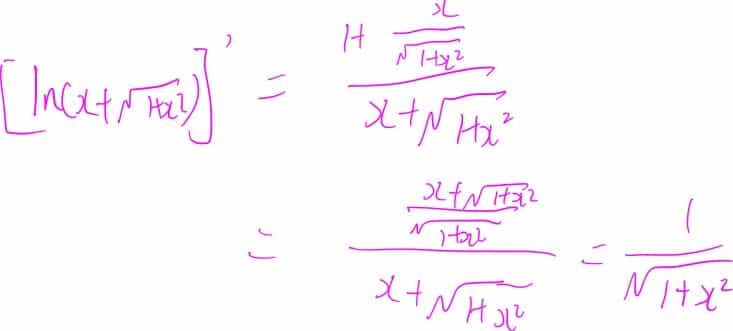 [ln(x+√(1+x²))]' = (1+ x/√(1+x²))/(x+√(1+x²))
= ((x+√(1+x²))/√(1+x²))/(x+√(1+x²)) = 1/√(1+x²)